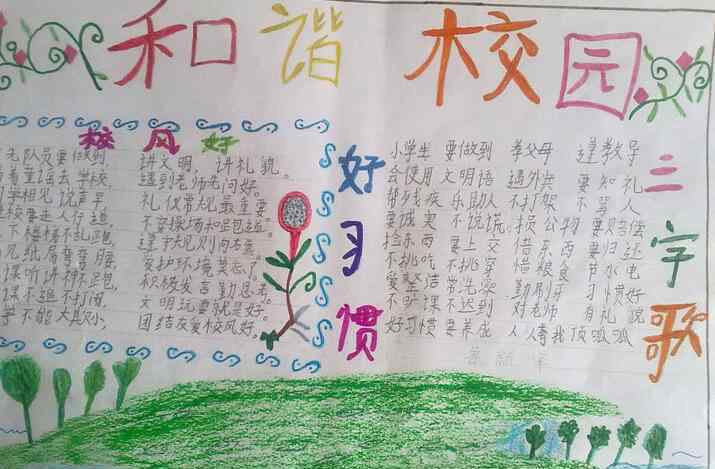 和谐校园
校风好
队员要做到, 讲文明,讲礼貌。
着童谣去学校, 遇到老师老问好。
同学相见说声早, 礼仪常规最重要
进校要走人行道, 不穿操场和跑道。
下楼梯不乱跑, 遵守规则向右靠。
见纸屑弯弯腰, 爱护环境莫忘了。
课听讲神不跑, 积极发言勤思考。
课不追不打闹, 文明玩耍就是好。
等不能大欺小, 团结友爱校风好。
好习惯
三字歌
小学生 要做到 孝父母 遵教导
会使用 文明语 遇外宾 要知礼
帮残疾 乐助人 不打架 不骂人
要诚实 不说谎 损公物 要赔偿
捡东西 要上交 借东西 要归还
不挑吃 不挑穿 惜粮食 节水电
爱整洁 常洗澡 勤刷牙 习惯好
不旷课 不迟到 对老师 有礼貌
好习惯 要养成 人人夸我顶呱呱